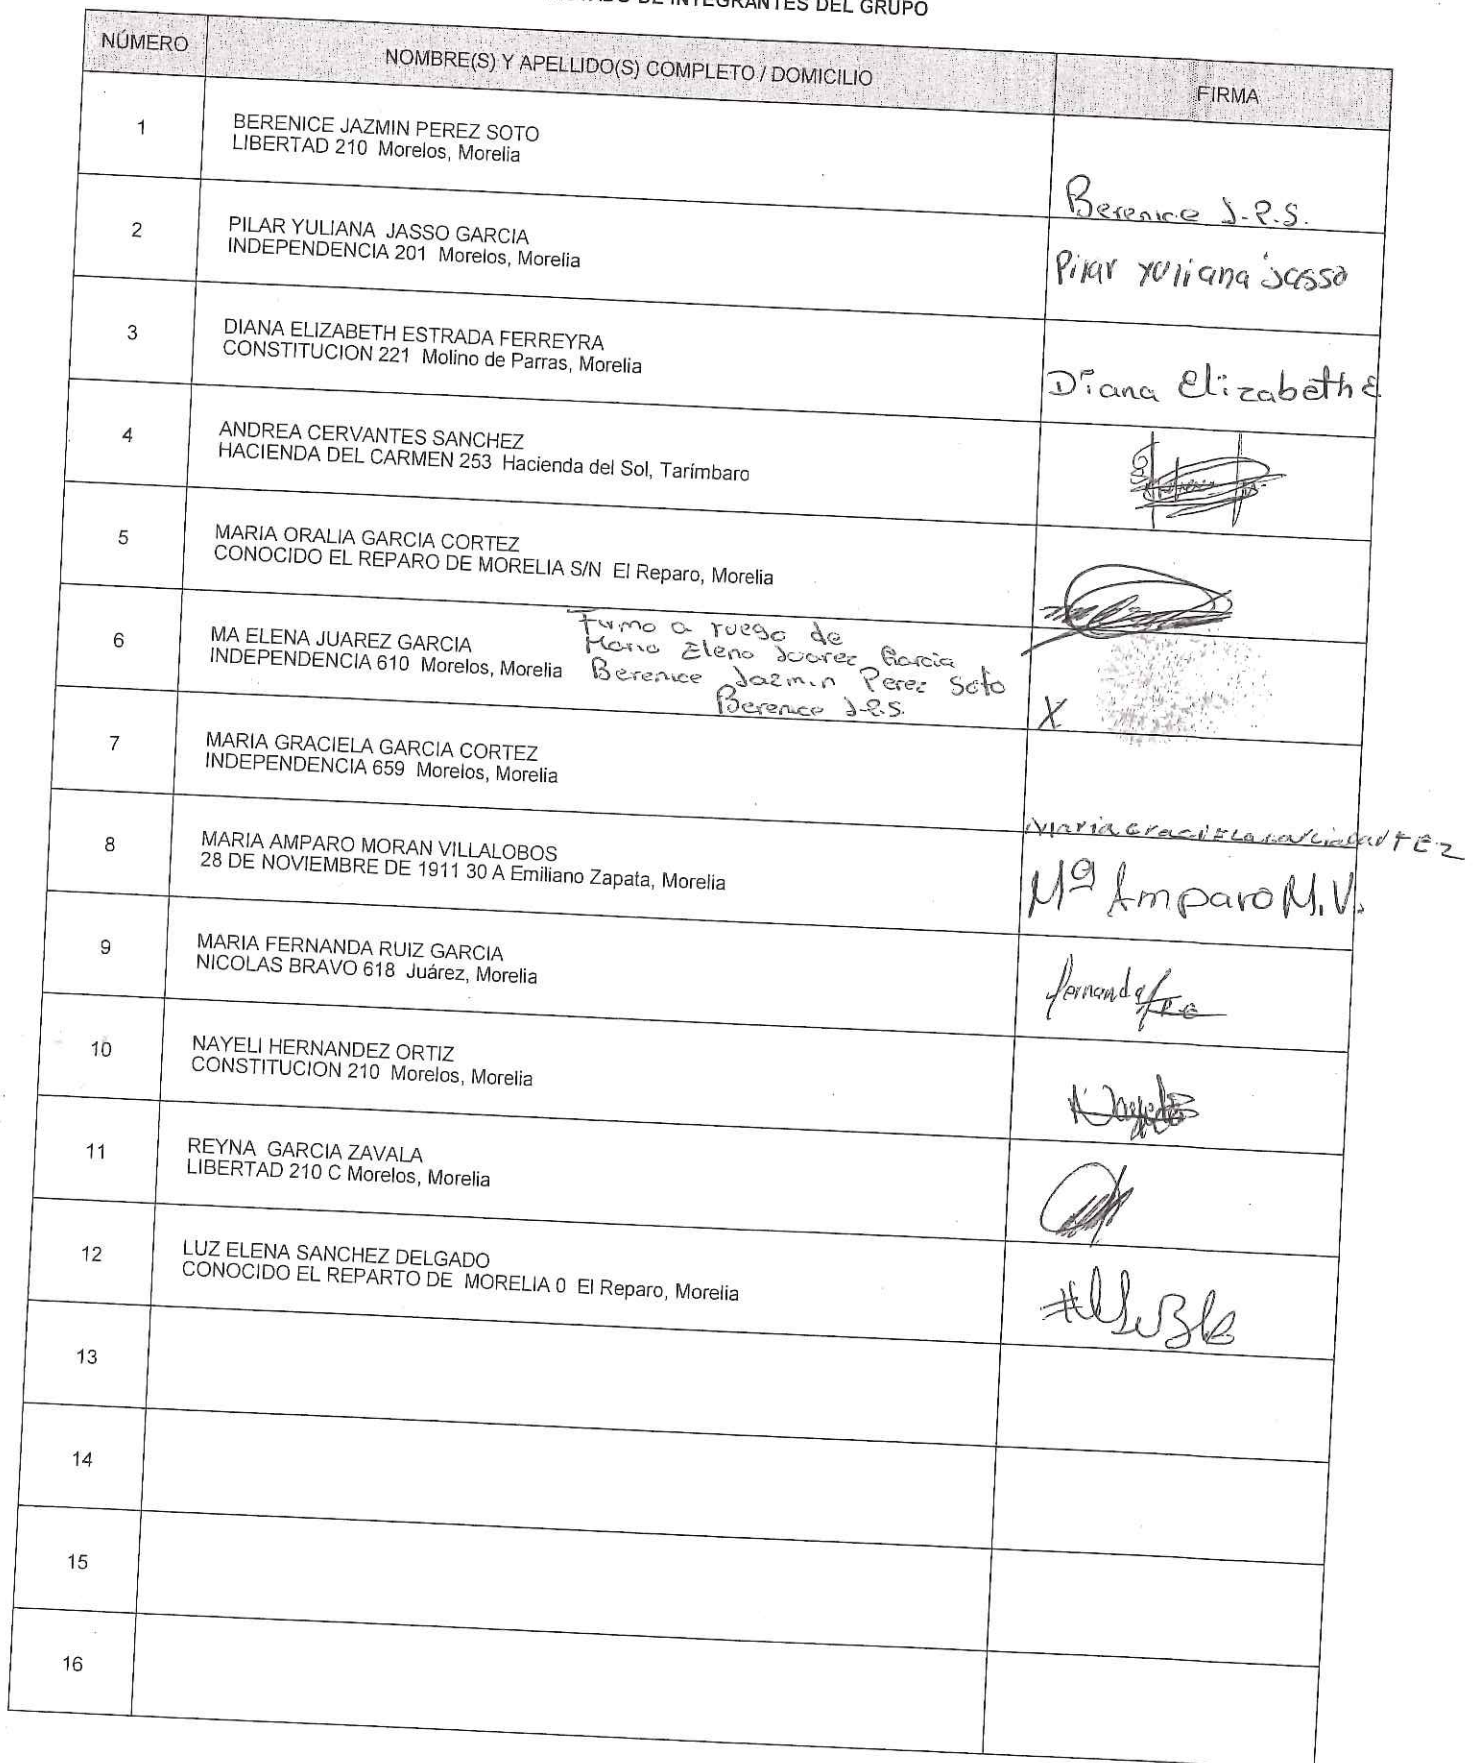 DE INTEGRANTES DEL GRUPO
NÚMERO NOMBRE(S) Y APELLIDO(S) COMPLETO / DOMICILIO FIRMA
1 BERENICE JAZMIN PEREZ SOTO
LIBERTAD 210 Morelos, Morelia
Berenice J.P.S.
2 PILAR YULIANA JASSO GARCIA
INDEPENDENCIA 201 Morelos, Morelia
Pilar Yuliana Jasso
3 DIANA ELIZABETH ESTRADA FERREYRA
CONSTITUCION 221 Molino de Parras, Morelia
Diana Elizabeth E
4 ANDREA CERVANTES SANCHEZ
HACIENDA DEL CARMEN 253 Hacienda del Sol, Tarímbaro
5 MARIA ORALIA GARCIA CORTEZ
CONOCIDO EL REPARO DE MORELIA S/N El Reparo, Morelia
6 MA ELENA JUAREZ GARCIA
INDEPENDENCIA 610 Morelos, Morelia
Firmo a ruego de
Maria Elena Juarez Garcia
Berenice Jazmin Perez Soto
Berenice J.P.S.
X
7 MARIA GRACIELA GARCIA CORTEZ
INDEPENDENCIA 659 Morelos, Morelia
Maria Graciela Garcia CorTEZ
8 MARIA AMPARO MORAN VILLALOBOS
28 DE NOVIEMBRE DE 1911 30 A Emiliano Zapata, Morelia
Mª Amparo M.V.
9 MARIA FERNANDA RUIZ GARCIA
NICOLAS BRAVO 618 Juárez, Morelia
fernanda
10 NAYELI HERNANDEZ ORTIZ
CONSTITUCION 210 Morelos, Morelia
Nayeli
11 REYNA GARCIA ZAVALA
LIBERTAD 210 C Morelos, Morelia
12 LUZ ELENA SANCHEZ DELGADO
CONOCIDO EL REPARTO DE MORELIA 0 El Reparo, Morelia
13
14
15
16